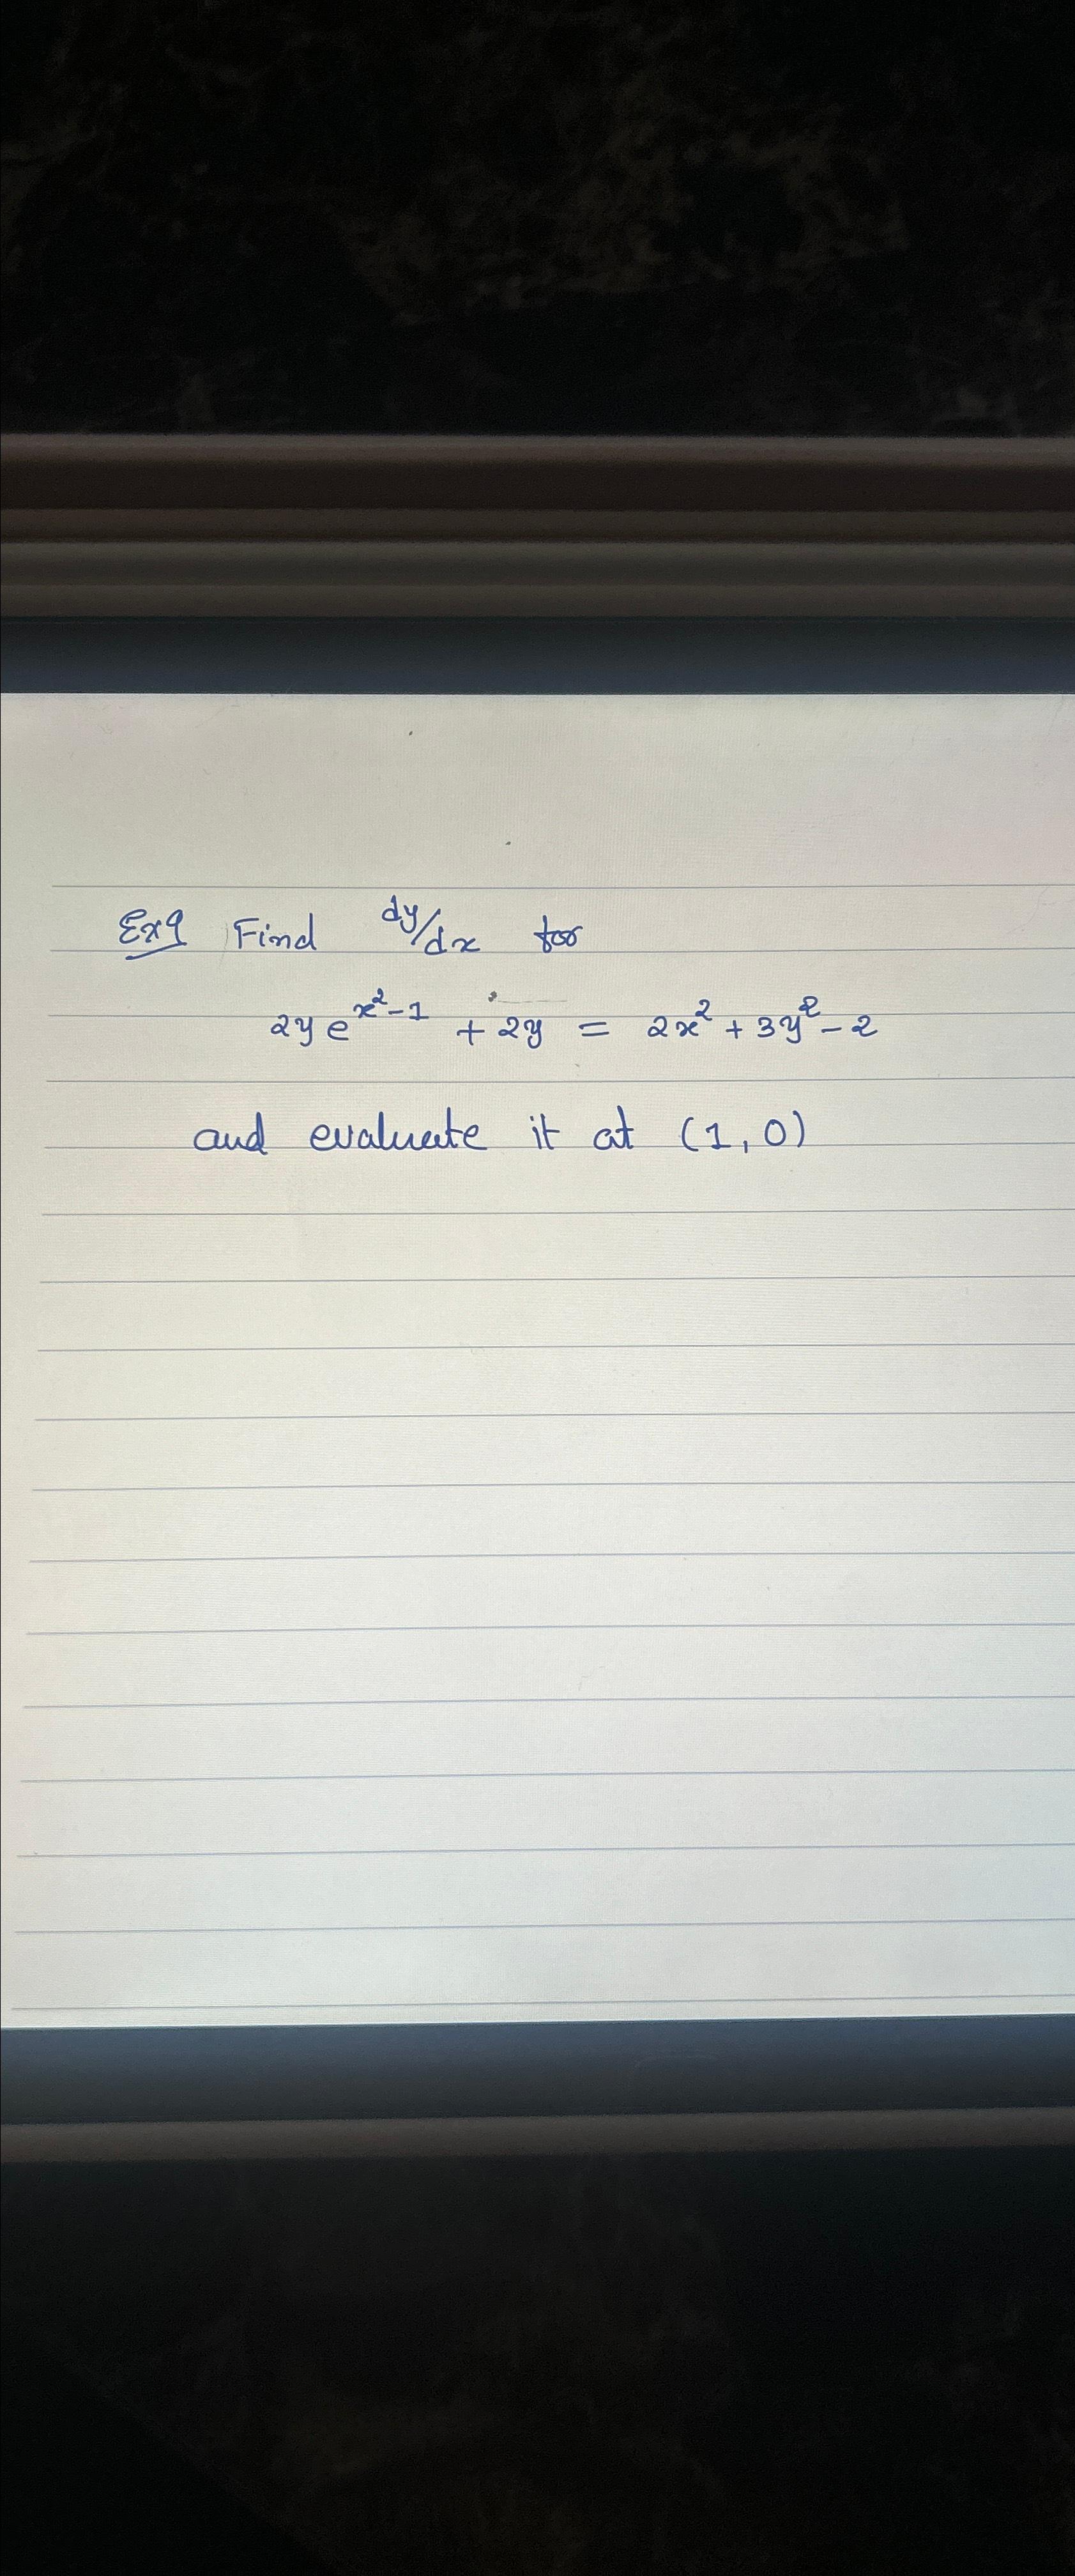 Ex9 Find dy/dx for
2y e^{x^2-1} + 2y = 2x^2 + 3y^2 - 2
and evaluate it at (1, 0)